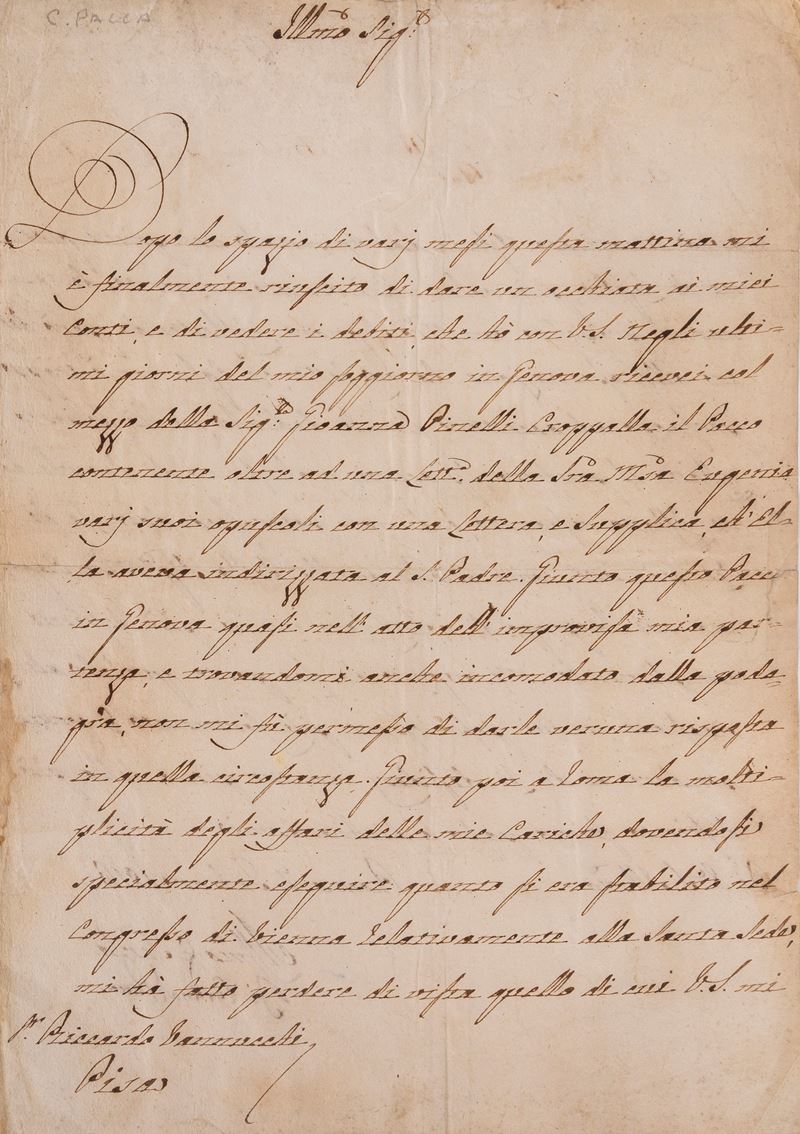 C. PACCA
Illmo Sigr
Dopo lo spazio di varj mesi questa mattina mi
è finalmente riuscito di dare un occhiata ai miei
Conti, e di vedere i debiti, che hò con V.S. Negli ulti=
mi giorni del mio soggiorno in Genova ricevei col
mezzo della Sigra Gioanna Pinelli Croppalla il Pacco
contenente oltre ad una Letta della Sra Msa Eugenia
varj suoi opuscoli con una Lettera, e Supplica, ch' El=
la aveva indirizzata al S. Padre. Giunto questo Pacco
in Genova quasi nell' atto dell' improvisa mia par=
tenza, e trovandomi anche incomodato dalla poda=
gra, non mi fù permesso di darle veruna risposta
in quella circostanza. Giunto poi a Roma la molti=
plicità degli affari delle mie Cariche, dovendosi
specialmente eseguire quanto si era stabilito nel
Congresso di Vienna relativamente alla Santa Sede,
mi hà fatto perdere di vista quello di cui V.S. mi
Sr Riccardo Vannucchi
Pisa